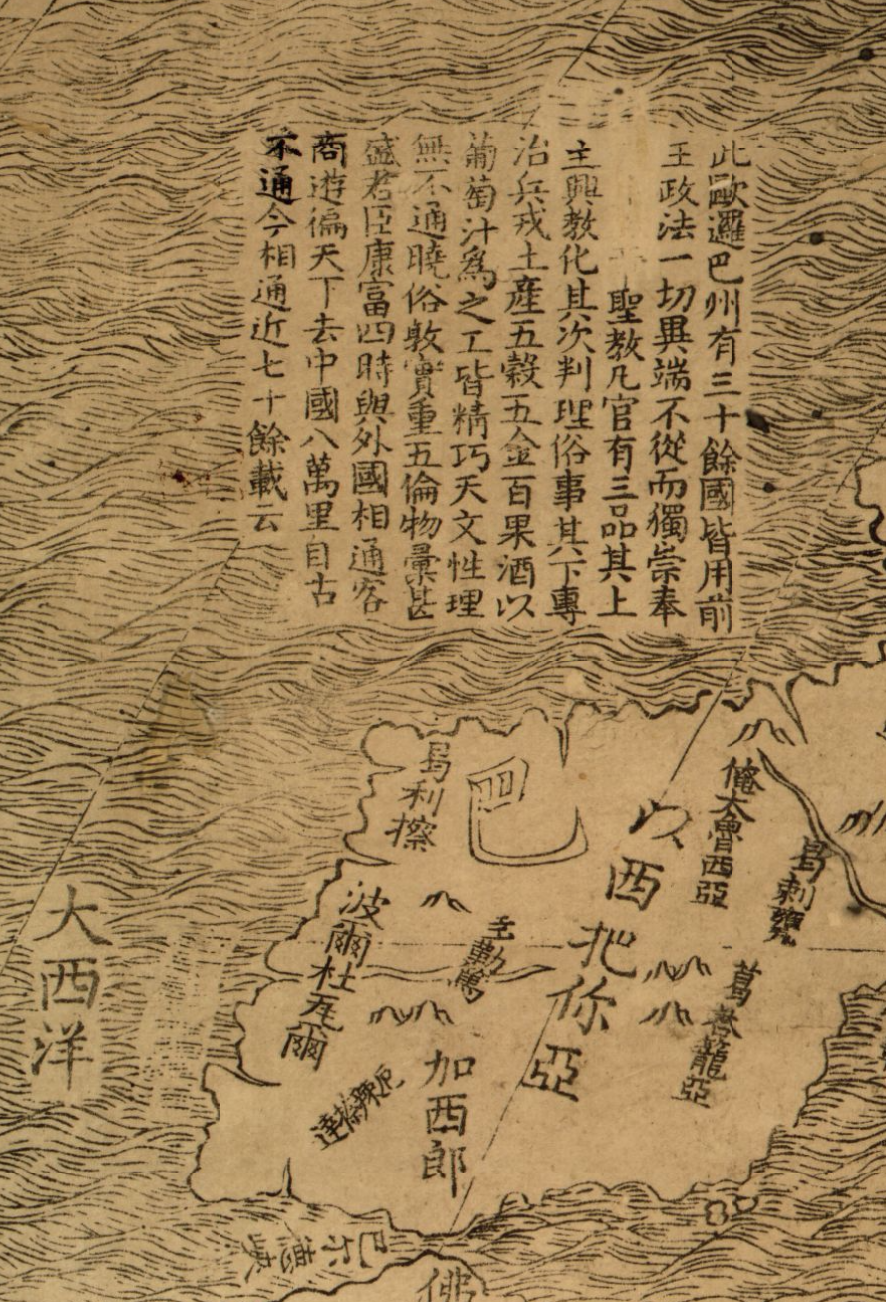 此歐邏巴州有三十餘國皆用前
王政法一切異端不從而獨崇奉
聖教凡官有三品其上
主興教化其次判理俗事其下專
治兵戎土產五穀五金百果酒以
葡萄汁爲之工皆精巧天文性理
無不通曉俗敦實重五倫物彙甚
盛君臣康富四時與外國相通客
商遊徧天下去中國八萬里自古
不通今相通近七十餘載云
巴
曷利擦
以西把你亞
俺大魯西亞
波爾杜瓦爾
加西郎
大西洋
佛